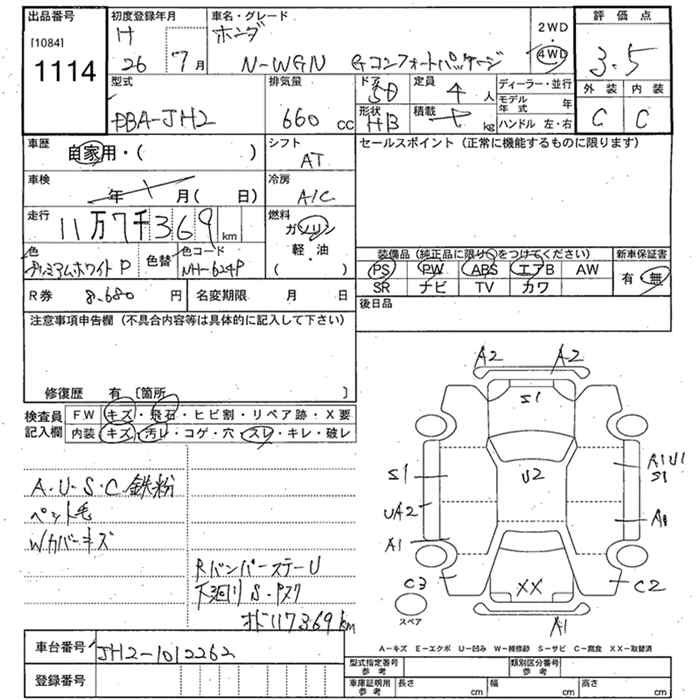 出品番号 初度登録年月 車名・グレード 2WD 評価点
[1084] H ホンダ 4WD
1114 26年 7月 N-WGN Gコンフォートパッケージ 3.5
型式 排気量 ドア 5D 定員 4人 ディーラー・並行 外装 内装
DBA-JH2 660cc 形状 HB 積載 kg モデル年式 年 C C
ハンドル 左・右
車歴 シフト セールスポイント (正常に機能するものに限ります)
自家用・( ) AT
車検 冷房
年 月( 日) A/C
走行 燃料
11万7千369km ガソリン
色 色替 色コード 軽・油 装備品 (純正品に限り○をつけてください) 新車保証書
プレミアムホワイトP NH-624P ( ) PS PW ABS エアB AW 有 無
R券 8,680円 名変期限 月 日 SR ナビ TV カワ
後日品
注意事項申告欄 (不具合内容等は具体的に記入して下さい)
修復歴 有 [箇所 ]
検査員 FW キズ・飛石・ヒビ割・リペア跡・X要
記入欄 内装 キズ・汚レ・コゲ・穴・スレ・キレ・破レ
A2 A2
S1
S1 U2 A1U1
S1
UA2 A1
A1
C3 XX C2
スペア A1
A・U・S・C 鉄粉
ペット毛
Wカバーキズ
RバンパーステーU
下廻り S・Pスク
オド117369km
A-キズ E-エクボ U-凹み W-補修跡 S-サビ C-腐食 XX-取替済
車台番号 JH2-1012262 型式指定番号 参考 類別区分番号 参考
登録番号 車庫証明用 参考 長さ cm 幅 cm 高さ cm